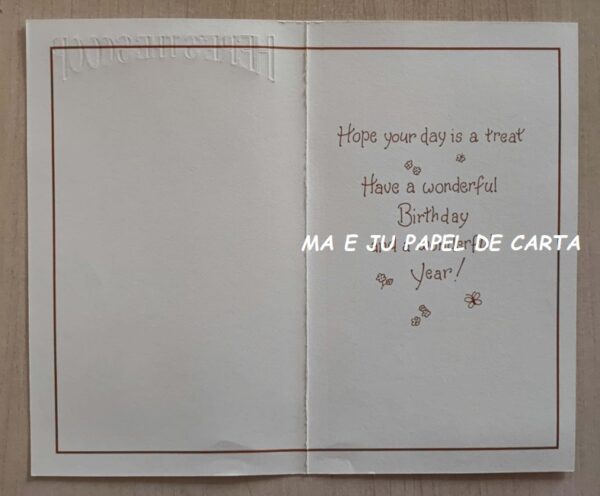 Hope your day is a treat
Have a wonderful
Birthday
MA E JU PAPEL DE CARTA
and a wonderful
Year!